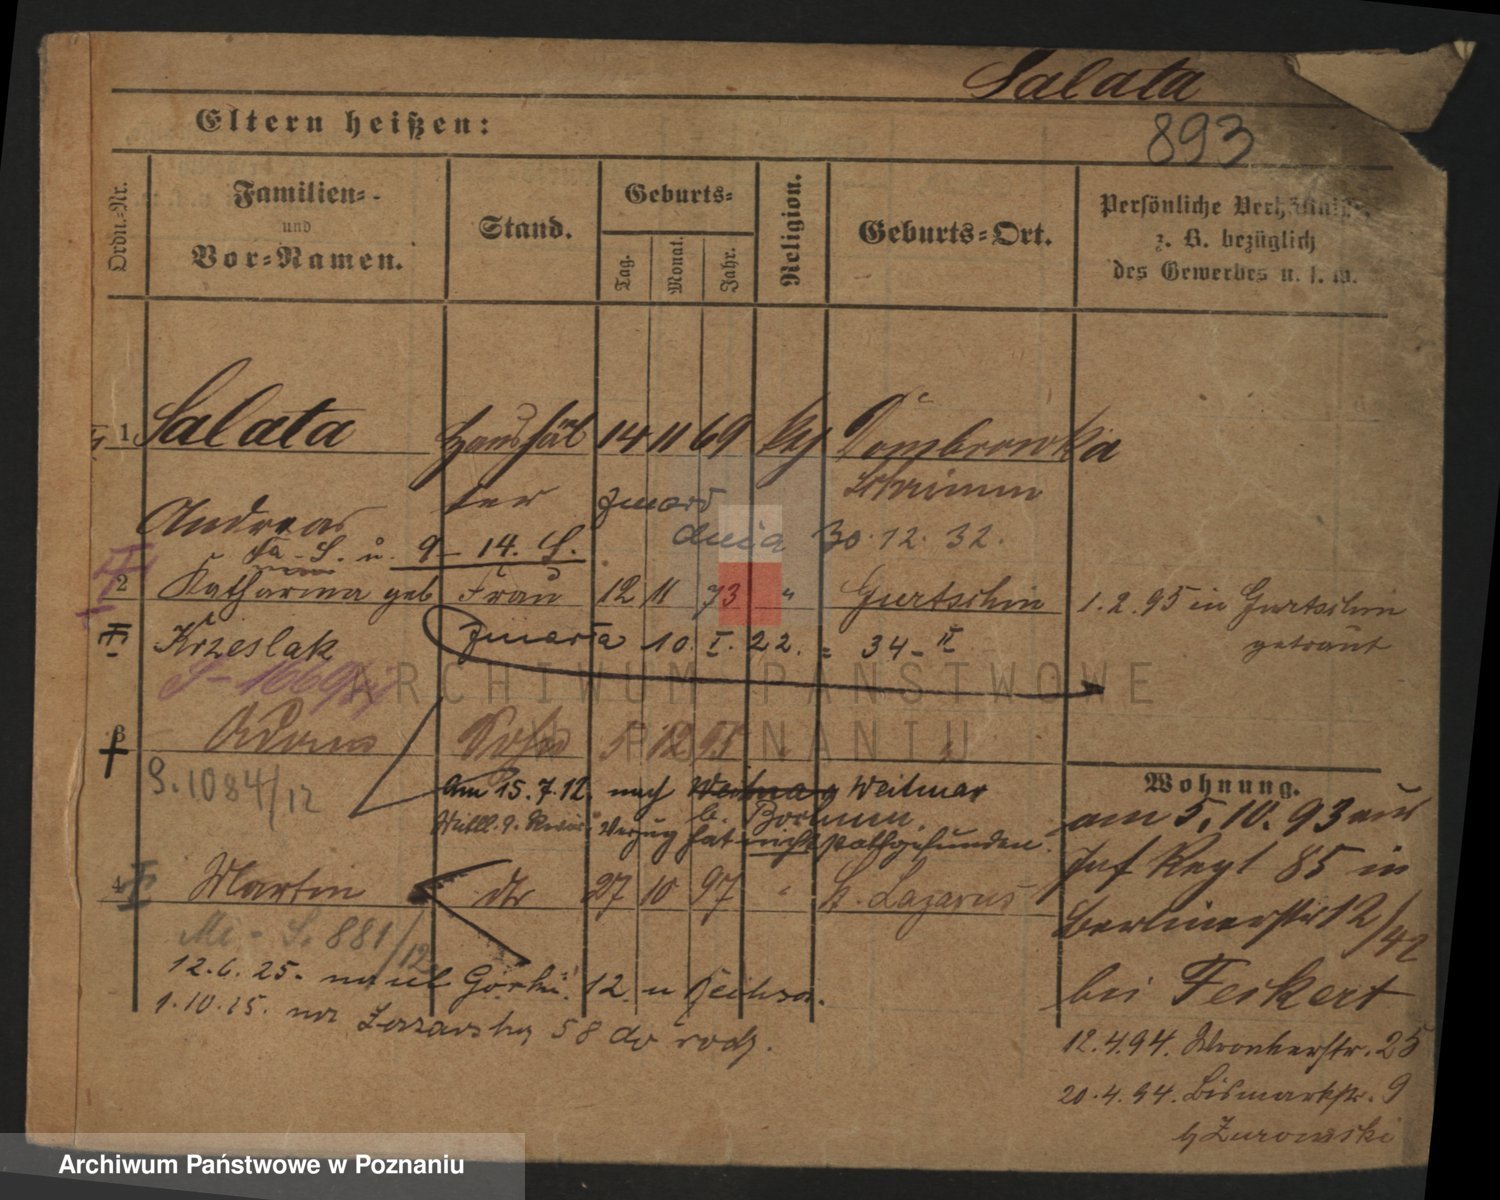 Salata
893
Eltern heißen:
Ordn.-Nr.
Familien-
und
Vor-Namen.
Stand.
Geburts-
Tag.
Monat.
Jahr.
Religion.
Geburts-Ort.
Persönliche Verhältnisse,
z. B. bezüglich
des Gewerbes u. s. w.
1 Salata Haushäl 14 11 69 kth Dombrowka
Andreas ter zmarł Schrimm
dnia 30.12.32.
9-14. S.
2 Katharina geb Frau 12 11 73 " Gurtschin 1.2.95 in Gurtschin
getraut
Krzeslak zmarła 10.I.22. = 34-II
3 Adam Sohn 5 12 95 " "
S.1084/12
am 15.7.12. nach Weitmar
b. Bochum
Verzug hat nicht stattgefunden.
4 Martin dto 27 10 97 " St. Lazarus
S. 881/12
12.6.25. na ul Górki 12 u
1.10.25. na 58 do rodz.
Wohnung.
am 5.10.93 aus
Inf Regt 85 in
Berlinerstr 12/42
bei Feikert
12.4.94. Wronkerstr. 25
20.4.94. Bismarkstr. 9
b Zurowski
ARCHIWUM PAŃSTWOWE
W POZNANIU
Archiwum Państwowe w Poznaniu